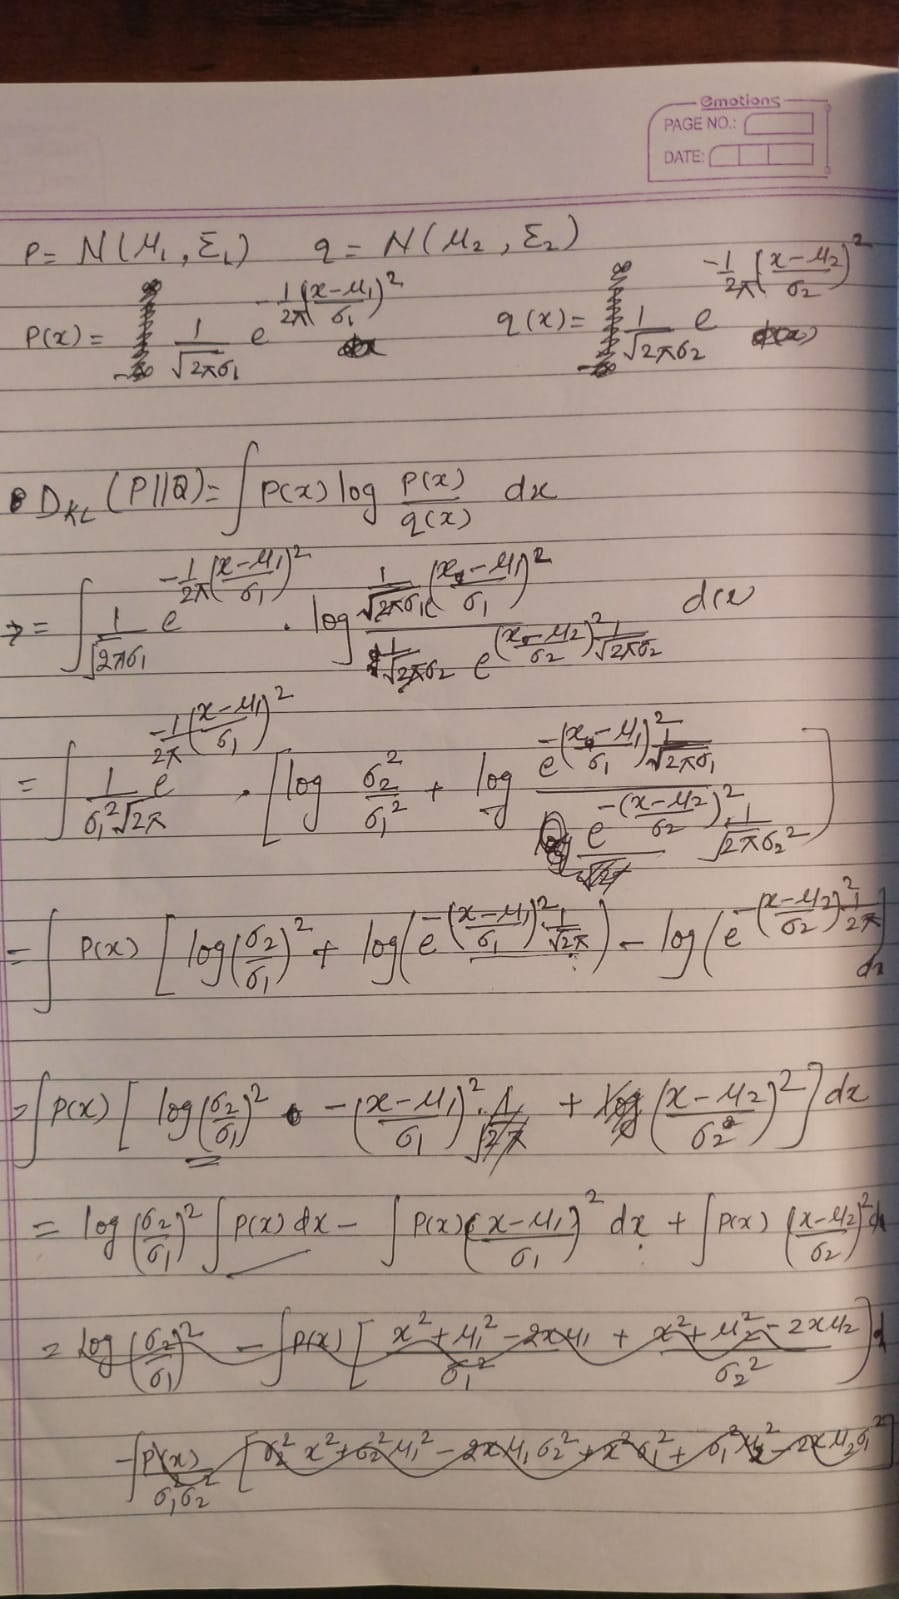 emotions
PAGE NO.:
DATE:
P = N(μ₁, Σ₁)   q = N(μ₂, Σ₂)
P(x) = 1/√2πσ₁ e^(-1/2π ((x-μ₁)/σ₁)²)   q(x) = 1/√2πσ₂ e^(-1/2π ((x-μ₂)/σ₂)²)
D_KL (P||Q) = ∫ P(x) log P(x)/q(x) dx
= ∫ 1/√2πσ₁ e^(-1/2π ((x-μ₁)/σ₁)²) . log
= ∫ 1/σ₁²√2π e^(-1/2π ((x-μ₁)/σ₁)²) . [log σ₂²/σ₁² + log e^(-((x-μ₁)/σ₁)² 1/√2πσ₁) / e^(-((x-μ₂)/σ₂)² 1/√2πσ₂²)]
= ∫ P(x) [log(σ₂/σ₁)² + log(e^(-((x-μ₁)/σ₁)² 1/√2π)) - log(e^(-((x-μ₂)/σ₂)² 1/2π)] dx
= ∫ P(x) [log(σ₂/σ₁)² - ((x-μ₁)/σ₁)² + ((x-μ₂)/σ₂)²] dx
= log(σ₂/σ₁)² ∫ P(x) dx - ∫ P(x) ((x-μ₁)/σ₁)² dx + ∫ P(x) ((x-μ₂)/σ₂)² dx
= log(σ₂/σ₁)² - ∫ P(x) [(x² + μ₁² - 2xμ₁)/σ₁² + (x² + μ² - 2xμ₂)/σ₂²] d
- ∫ P(x)/σ₁²σ₂² [σ₂²x² + σ₂²μ₁² - 2xμ₁σ₂² + x²σ₁² + σ₁²μ₂² - 2xμ₂σ₁²]